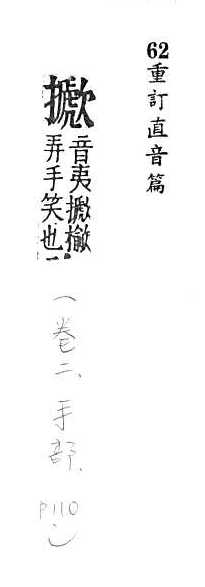 62重訂直音篇
擨
音夷擨揄
弄手笑也
(卷二、手部、P110)